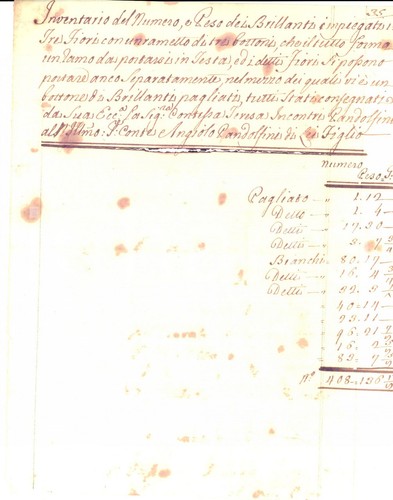 35
Inventario del Numero, e Peso dei Brillanti impiegati in
Tre Fiori con un ramello di tre bottoni, che il tutto forma
un Ramo da portarsi in Testa, ed i detti Fiori si possono
portare anco Separatamente, nel mezzo dei quali vi è un
bottone di Brillanti pagliati, tutti Stati consegnati
da Sua Ecc.za la Sig.ra Contessa Teresa Incontri Landolfini
al Ill.mo S.r Conte Angiolo Landolfini di Lei Figlio
Numero, Peso, F
Pagliato — " 1. 12 —
Detto — " 1. 4 —
Detti — " 17. 30 —
Detti — "
Bianchi — " 80. 17 —
Detti — " 16. 4
Detti — "
40 = 14 —
23. 11 —
96. 21
16. 2
83. 7
N.o 408 = 136 1/2